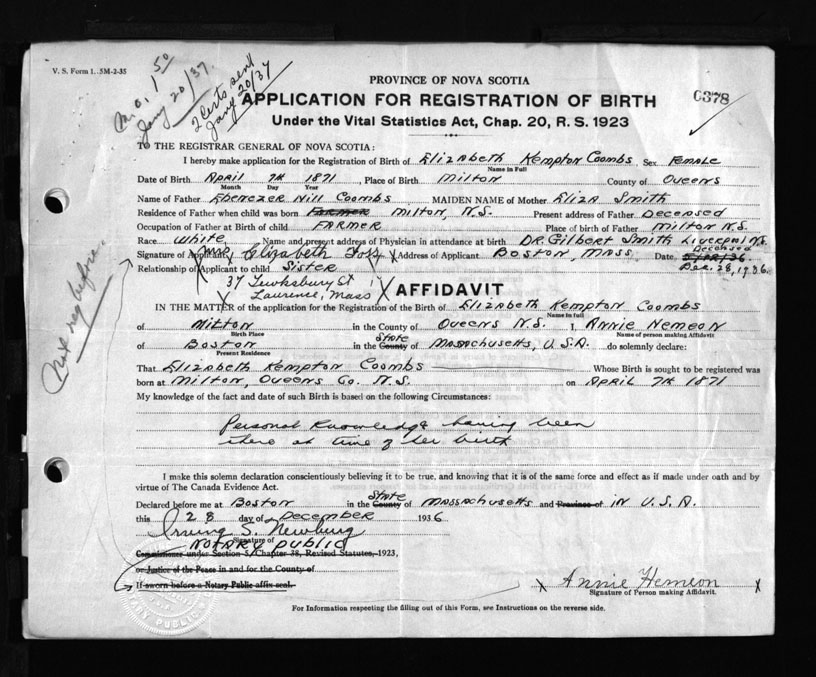 V. S. Form 1. .5M-2-35
m.o. 1 50
Jany 20/37.
2 Certs sent
Jany 20/37
PROVINCE OF NOVA SCOTIA
APPLICATION FOR REGISTRATION OF BIRTH
Under the Vital Statistics Act, Chap. 20, R. S. 1923
0378
TO THE REGISTRAR GENERAL OF NOVA SCOTIA:
I hereby make application for the Registration of Birth of Elizabeth Kempton Coombs Sex Female
Name in Full
Date of Birth April 7th 1871, Place of Birth Milton County of Queens
Month Day Year
Name of Father Ebenezer Hill Coombs MAIDEN NAME of Mother Eliza Smith
Residence of Father when child was born Farmer Milton, N.S. Present address of Father Deceased
Occupation of Father at Birth of child Farmer Place of birth of Father Milton N.S.
Race White Name and present address of Physician in attendance at birth Dr. Gilbert Smith Liverpool N.S.
Deceased
Signature of Applicant Mrs. Elizabeth Foss Address of Applicant Boston, Mass. Date
Relationship of Applicant to child Sister Dec. 28, 1936.
37 Tewksbury St
Laurence, Mass
Not reg before.
AFFIDAVIT
IN THE MATTER of the application for the Registration of the Birth of Elizabeth Kempton Coombs
Name in full
of Milton in the County of Queens N.S. I, Annie Hemeon
Birth Place Name of person making Affidavit
of Boston in the County State of Massachusetts, U.S.A. do solemnly declare:
Present Residence
That Elizabeth Kempton Coombs Whose Birth is sought to be registered was
born at Milton, Queens Co. N.S. on April 7th 1871
My knowledge of the fact and date of such Birth is based on the following Circumstances:
Personal Knowledge having been
there at time of her birth
I make this solemn declaration conscientiously believing it to be true, and knowing that it is of the same force and effect as if made under oath and by
virtue of The Canada Evidence Act.
Declared before me at Boston in the County State of Massachusetts and Province of in U.S.A.
this 28 day of December 1936
Irving S. Newburg
Signature of
Notary Public
Commissioner under Section 5, Chapter 38, Revised Statutes, 1923,
or Justice of the Peace in and for the County of
If sworn before a Notary Public affix seal.
x Annie Hemeon x
Signature of Person making Affidavit.
For Information respecting the filling out of this Form, see Instructions on the reverse side.